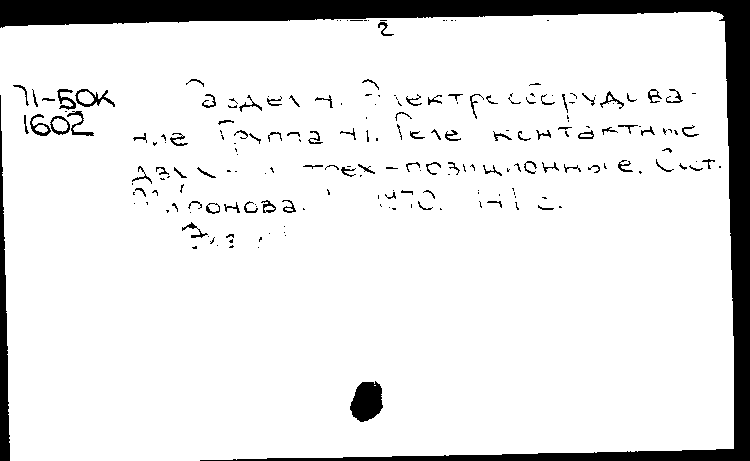 2
71-БОК
1602
Раздел 4. Электрооборудова-
ние Группа 41. Реле контактные
двух- и трех-позиционные. Сост.
Миронова. 1970. с.